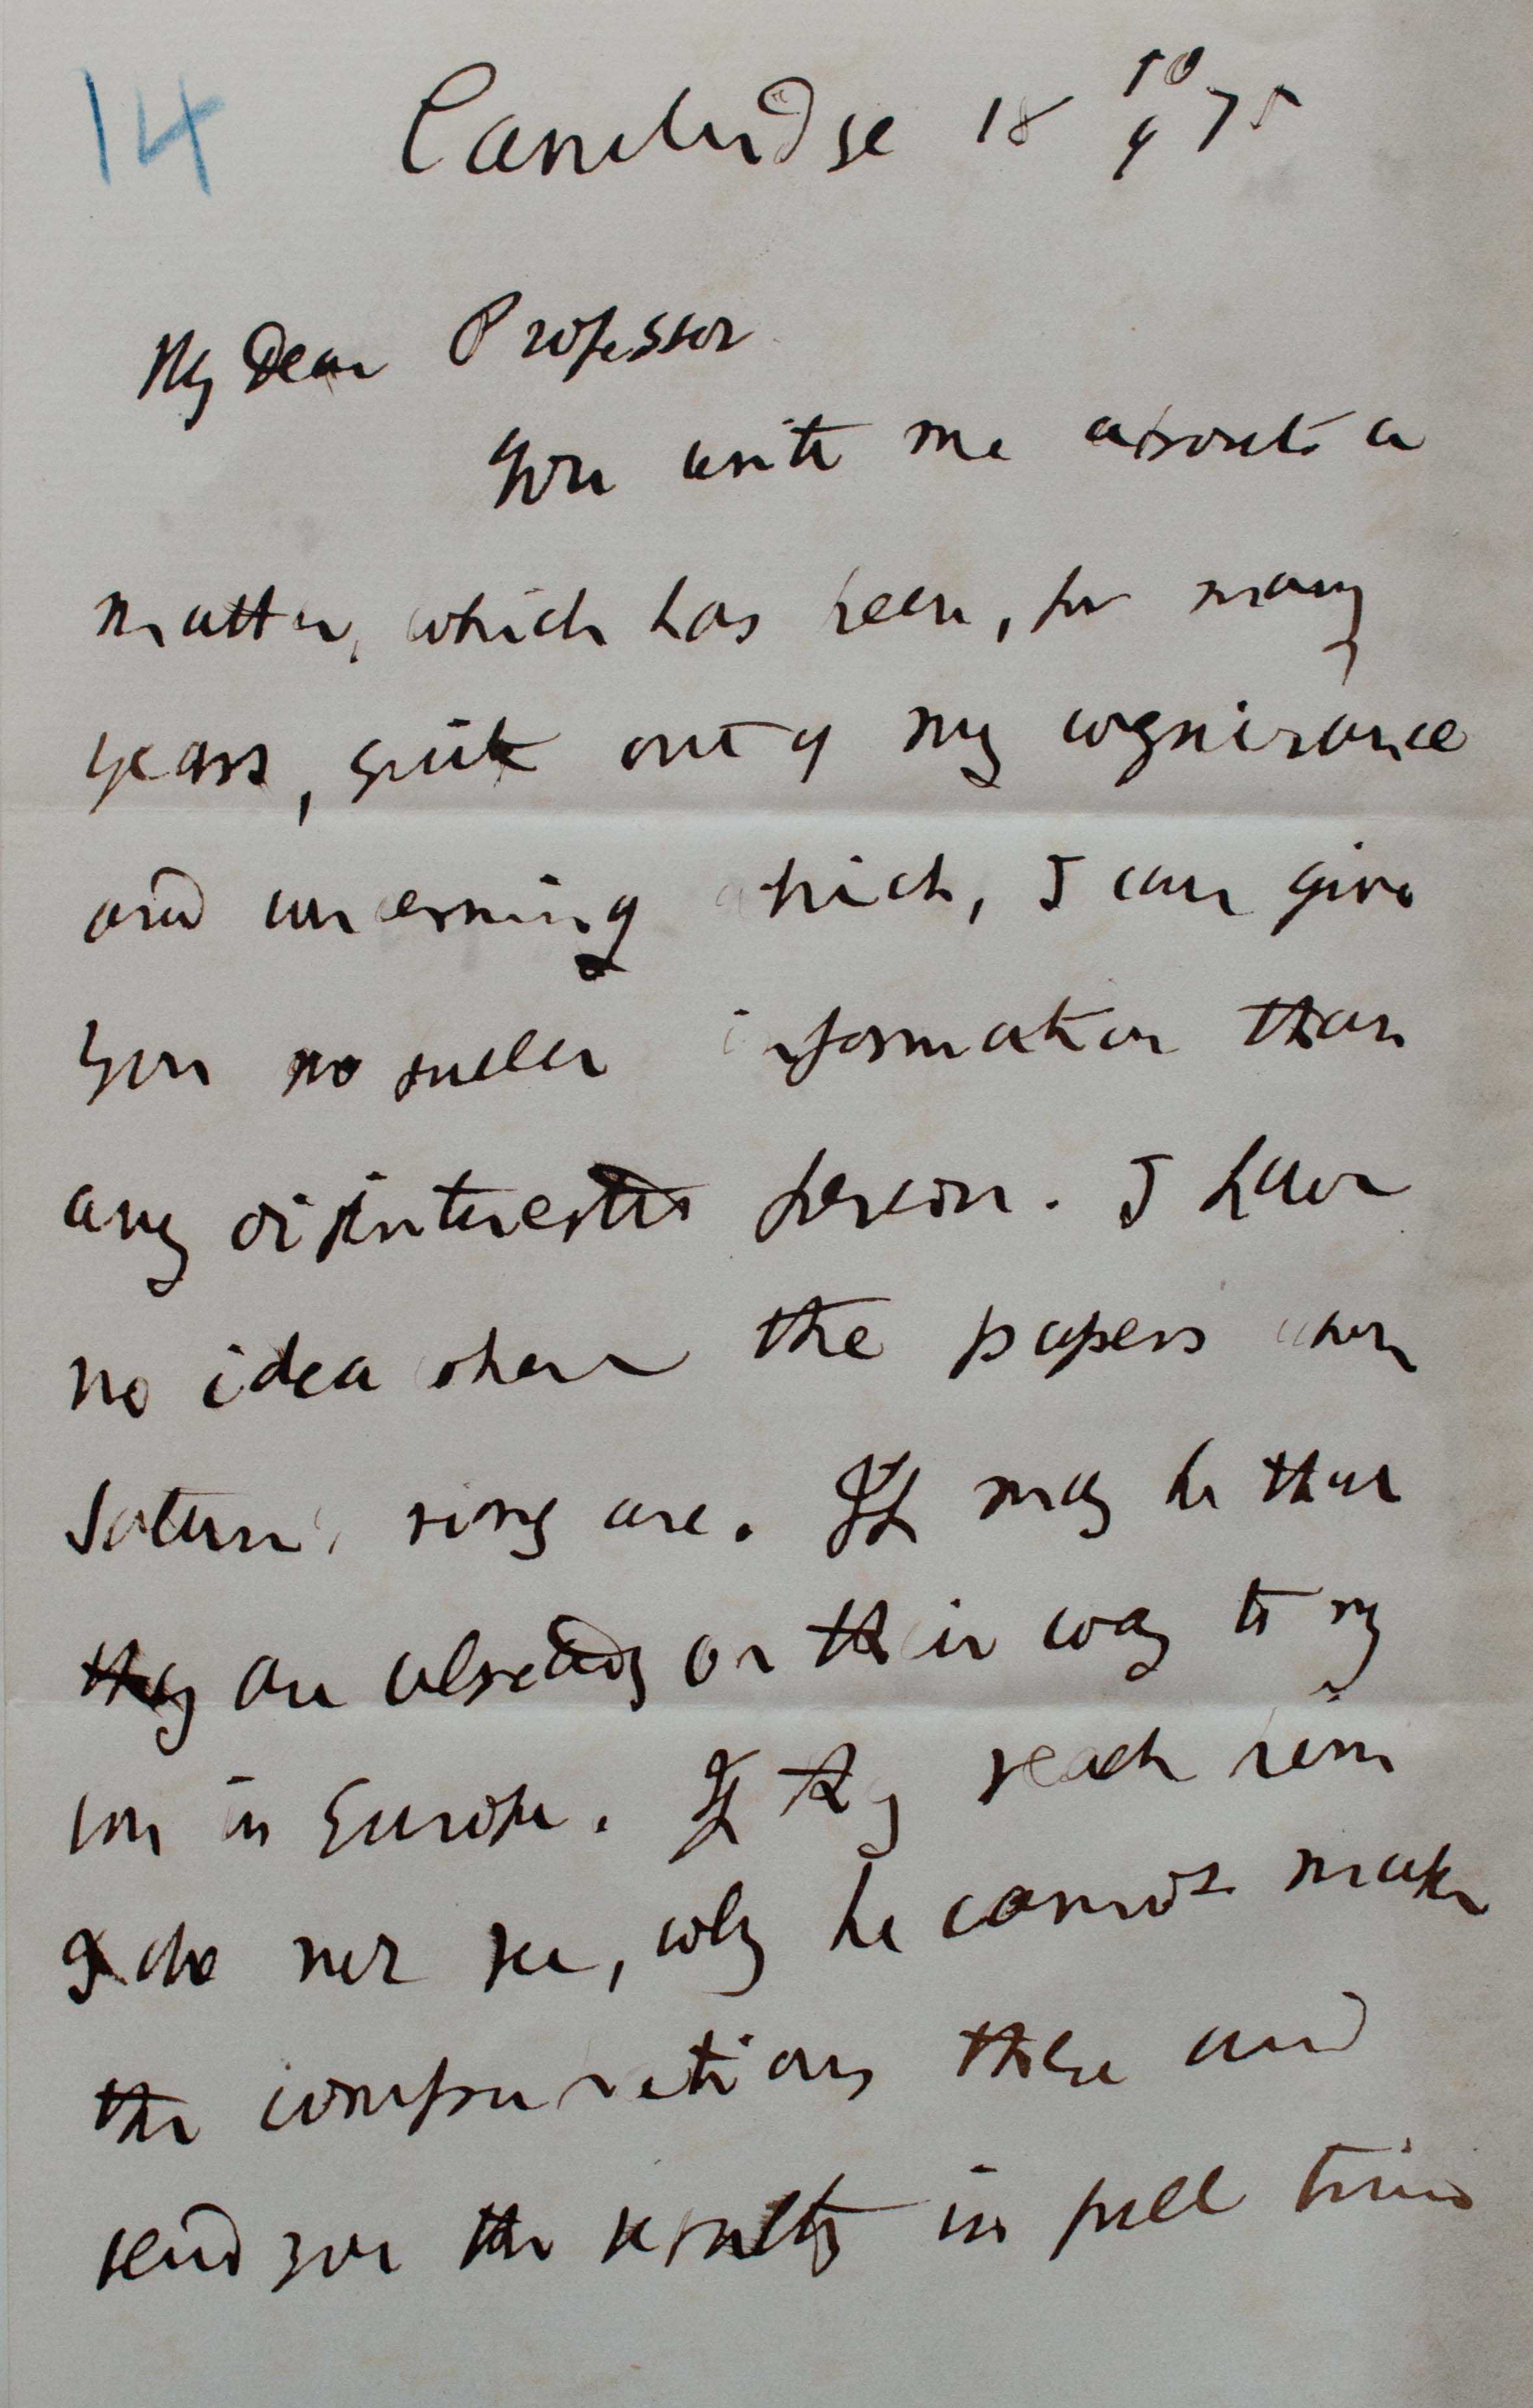 14 Cambridge 18 10/4 75
My Dear Professor
You write me about a
matter, which has been, for many
years, quite out of my cognizance
and concerning which, I can give
you no fuller information than
any disinterested person. I have
no idea where the papers upon
Saturn's ring are. It may be that
they are already on their way to my
son in Europe. If they reach him
I do not see, why he cannot make
the computations there and
send you the results in full time